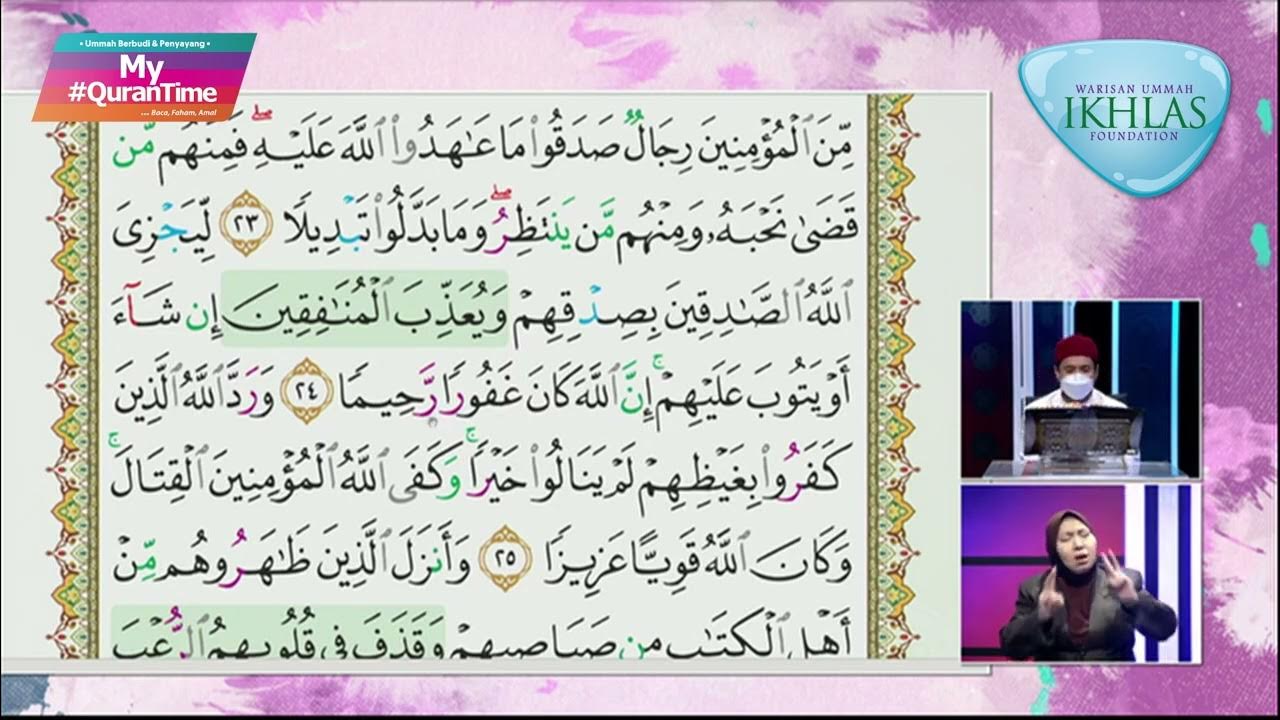 • Ummah Berbudi & Penyayang •
My
#QuranTime
... Baca, Faham, Amal
WARISAN UMMAH
IKHLAS
FOUNDATION
مِّنَ ٱلْمُؤْمِنِينَ رِجَالٌ صَدَقُوا۟ مَا عَـٰهَدُوا۟ ٱللَّهَ عَلَيْهِ ۖ فَمِنْهُم مَّن
قَضَىٰ نَحْبَهُۥ وَمِنْهُم مَّن يَنتَظِرُ ۖ وَمَا بَدَّلُوا۟ تَبْدِيلًا ٢٣ لِّيَجْزِىَ
ٱللَّهُ ٱلصَّـٰدِقِينَ بِصِدْقِهِمْ وَيُعَذِّبَ ٱلْمُنَـٰفِقِينَ إِن شَآءَ
أَوْ يَتُوبَ عَلَيْهِمْ ۚ إِنَّ ٱللَّهَ كَانَ غَفُورًا رَّحِيمًا ٢٤ وَرَدَّ ٱللَّهُ ٱلَّذِينَ
كَفَرُوا۟ بِغَيْظِهِمْ لَمْ يَنَالُوا۟ خَيْرًا ۚ وَكَفَى ٱللَّهُ ٱلْمُؤْمِنِينَ ٱلْقِتَالَ ۚ
وَكَانَ ٱللَّهُ قَوِيًّا عَزِيزًا ٢٥ وَأَنزَلَ ٱلَّذِينَ ظَـٰهَرُوهُم مِّنْ
أَهْلِ ٱلْكِتَـٰبِ مِن صَيَاصِيهِمْ وَقَذَفَ فِى قُلُوبِهِمُ ٱلرُّعْبَ